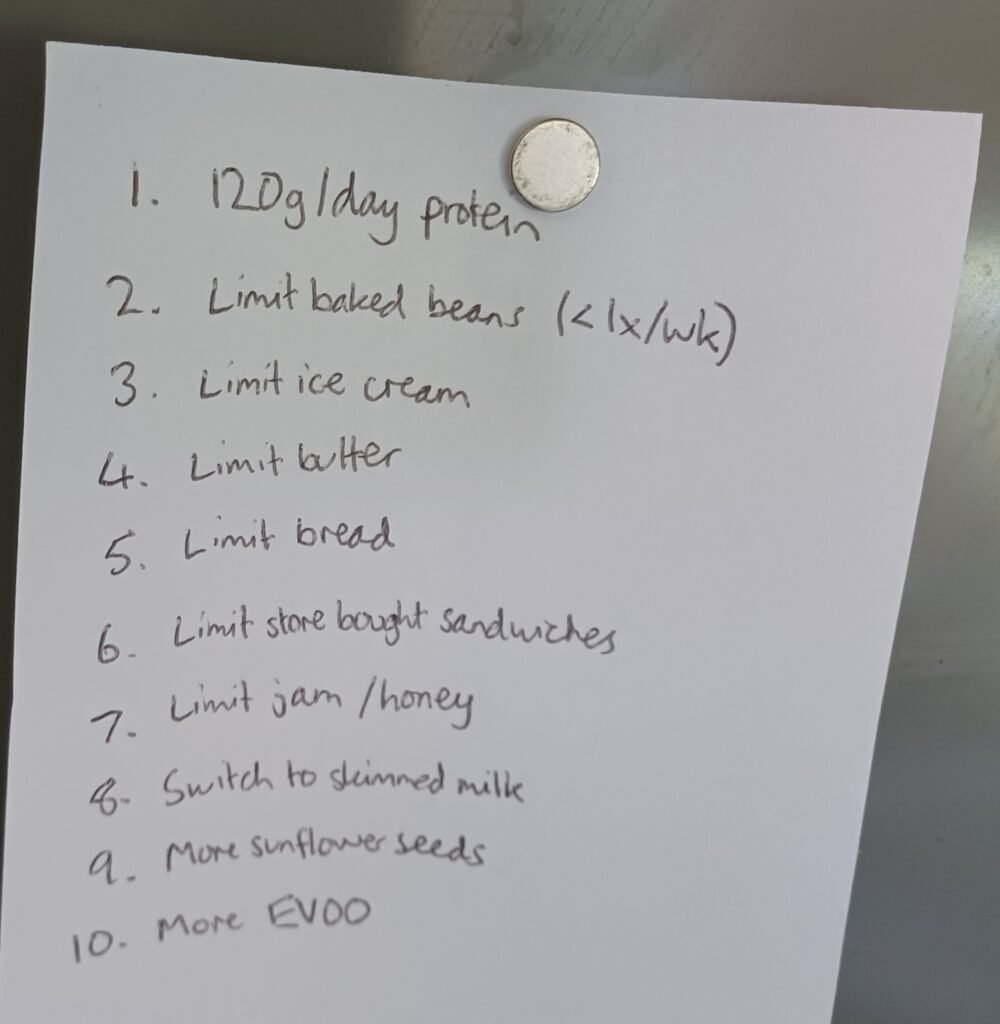 1. 120g/day protein
2. Limit baked beans (<1x/wk)
3. Limit ice cream
4. Limit butter
5. Limit bread
6. Limit store bought sandwiches
7. Limit jam/honey
8. Switch to skimmed milk
9. More sunflower seeds
10. More EVOO